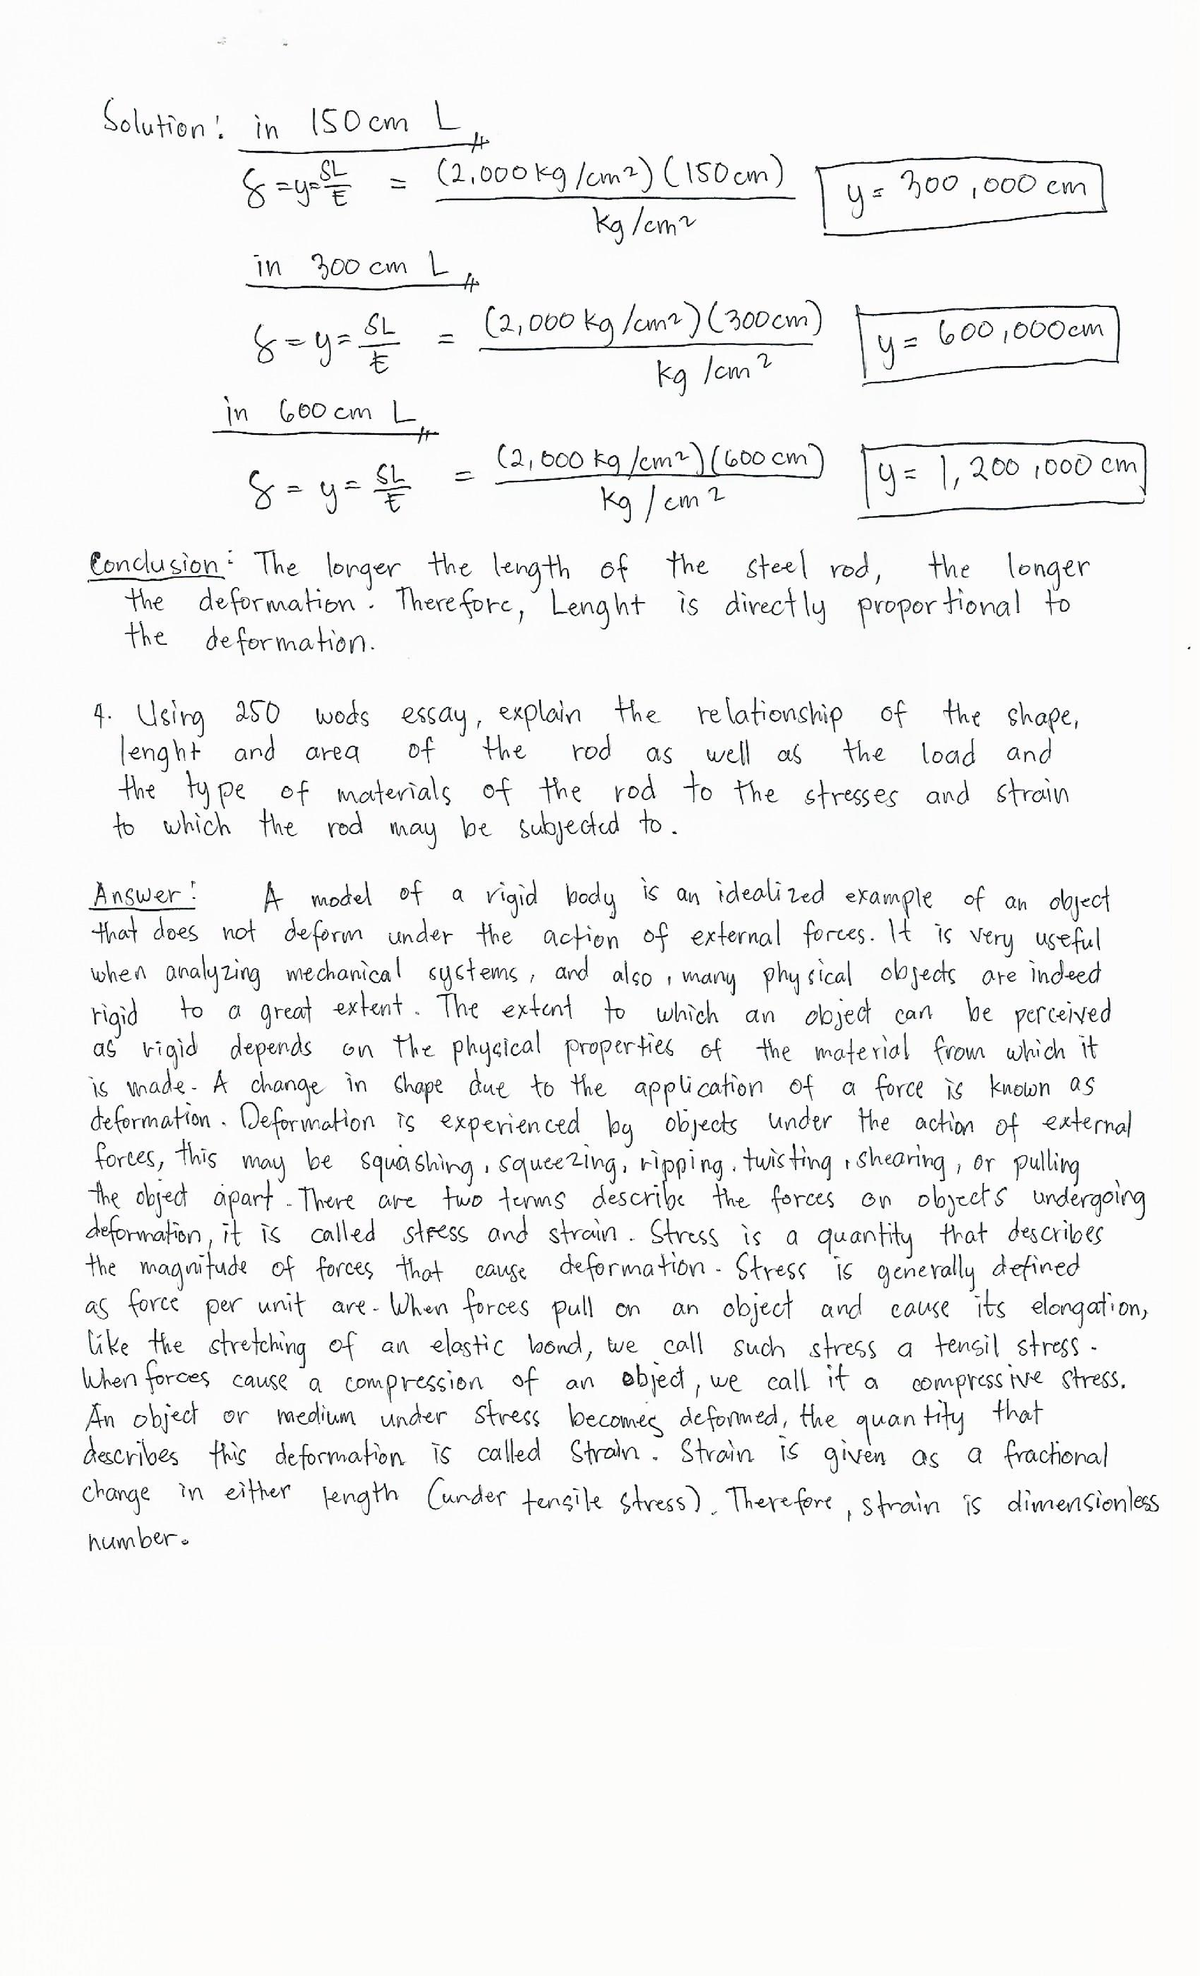 Solution: in 150 cm L
δ = y = SL/E = (2,000 kg/cm²) (150 cm) / kg/cm² y = 300,000 cm
in 300 cm L
δ = y = SL/E = (2,000 kg/cm²) (300 cm) / kg/cm² y = 600,000 cm
in 600 cm L
δ = y = SL/E = (2,000 kg/cm²) (600 cm) / kg/cm² y = 1,200,000 cm
Conclusion: The longer the length of the steel rod, the longer
the deformation. Therefore, Lenght is directly proportional to
the deformation.
4. Using 250 wods essay, explain the relationship of the shape,
lenght and area of the rod as well as the load and
the type of materials of the rod to the stresses and strain
to which the rod may be subjected to.
Answer: A model of a rigid body is an idealized example of an object
that does not deform under the action of external forces. It is very useful
when analyzing mechanical systems, and also, many physical objects are indeed
rigid to a great extent. The extent to which an object can be perceived
as rigid depends on the physical properties of the material from which it
is made. A change in shape due to the application of a force is known as
deformation. Deformation is experienced by objects under the action of external
forces, this may be squashing, squeezing, ripping, twisting, shearing, or pulling
the object apart. There are two terms describe the forces on objects undergoing
deformation, it is called stress and strain. Stress is a quantity that describes
the magnitude of forces that cause deformation. Stress is generally defined
as force per unit are. When forces pull on an object and cause its elongation,
like the stretching of an elastic bond, we call such stress a tensil stress.
When forces cause a compression of an object, we call it a compressive stress.
An object or medium under stress becomes deformed, the quantity that
describes this deformation is called Strain. Strain is given as a fractional
change in either length (under tensile stress). Therefore, strain is dimensionless
number.